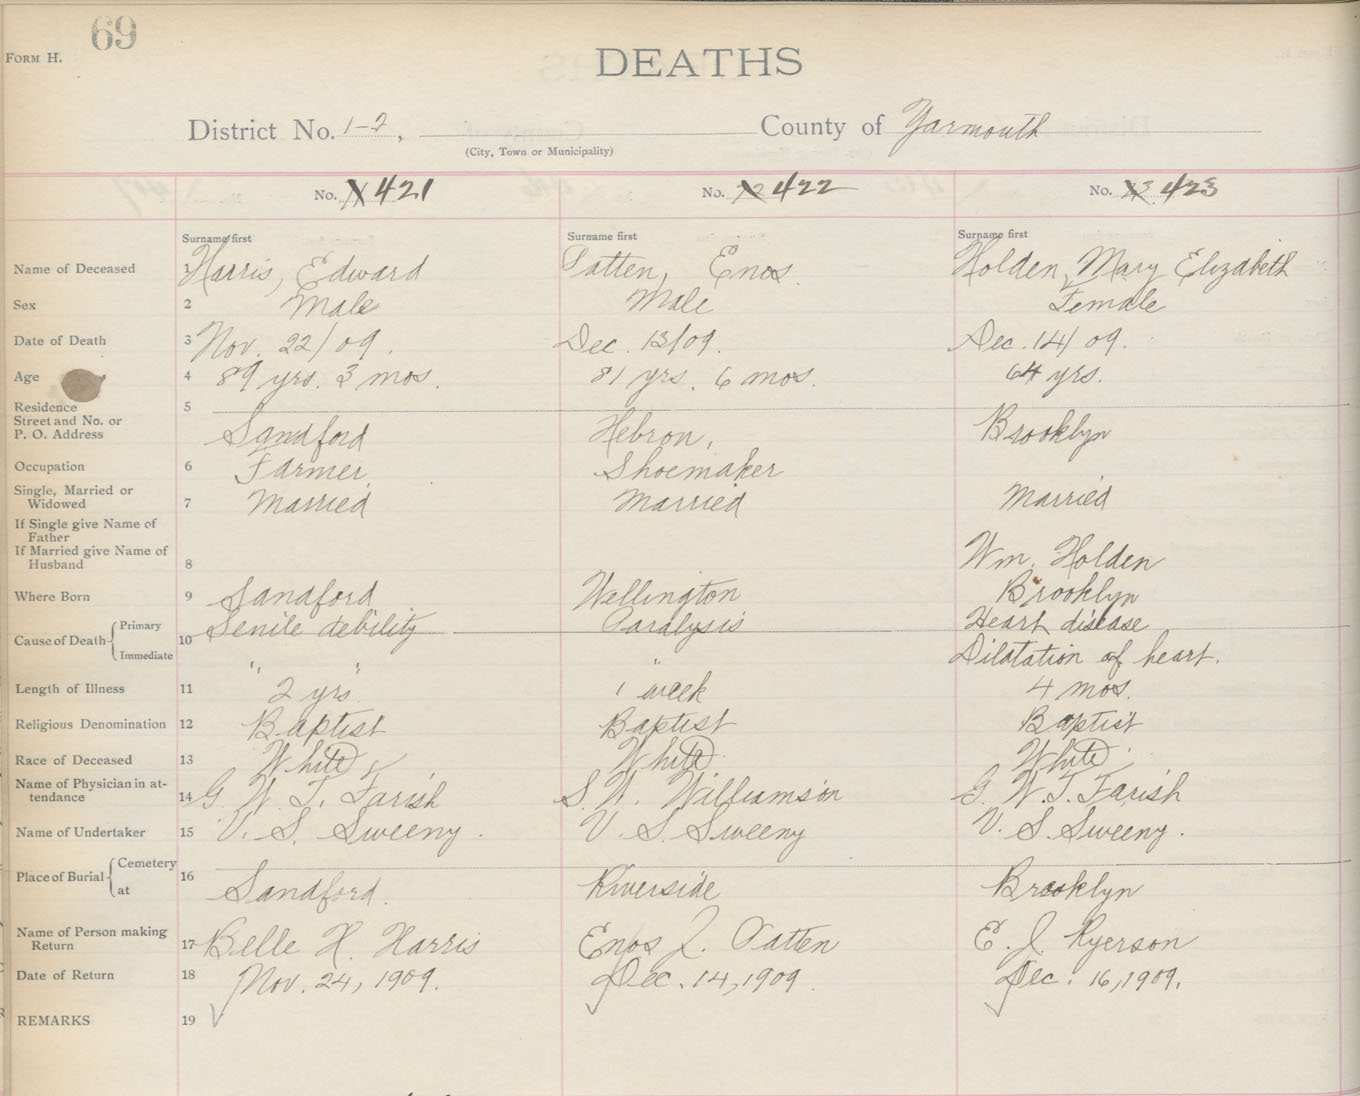 69
FORM H.
DEATHS
District No. 1-2, County of Yarmouth
(City, Town or Municipality)
No. 421 No. 422 No. 423
Surname first Surname first Surname first
Name of Deceased 1 Harris, Edward Patten, Enos. Holden, Mary Elizabeth
Sex 2 Male Male Female
Date of Death 3 Nov. 22/09. Dec. 13/09. Dec. 14/09.
Age 4 89 yrs. 3 mos. 81 yrs. 6 mos. 64 yrs.
Residence 5
Street and No. or
P. O. Address Sandford Hebron, Brooklyn
Occupation 6 Farmer Shoemaker
Single, Married or
Widowed 7 Married Married Married
If Single give Name of
Father
If Married give Name of
Husband 8 Wm. Holden
Where Born 9 Sandford Wellington Brooklyn
Cause of Death 10 Primary Senile debility Paralysis Heart disease
Immediate " " " Dilatation of heart.
Length of Illness 11 2 yrs 1 week 4 mos.
Religious Denomination 12 Baptist Baptist Baptist
Race of Deceased 13 White White White
Name of Physician in at-
tendance 14 G. W. T. Farish S. W. Williamson G. W. T. Farish
Name of Undertaker 15 V. S. Sweeny. V. S. Sweeny V. S. Sweeny.
Place of Burial 16 Cemetery
at Sandford. Riverside Brooklyn
Name of Person making
Return 17 Belle H. Harris Enos J. Patten E. J. Ryerson
Date of Return 18 Nov. 24, 1909. Dec. 14, 1909. Dec. 16, 1909.
REMARKS 19